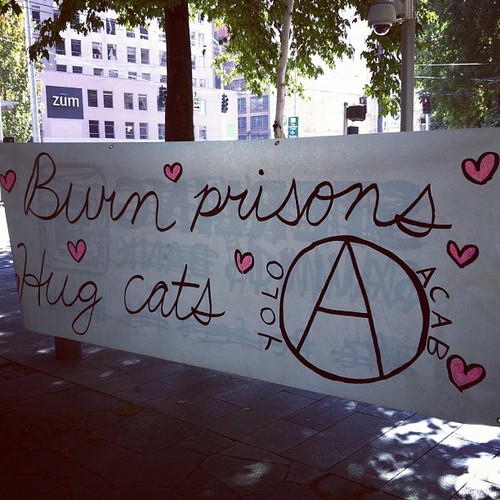 zūm
Burn prisons
Hug cats
YOLO
A
ACAB